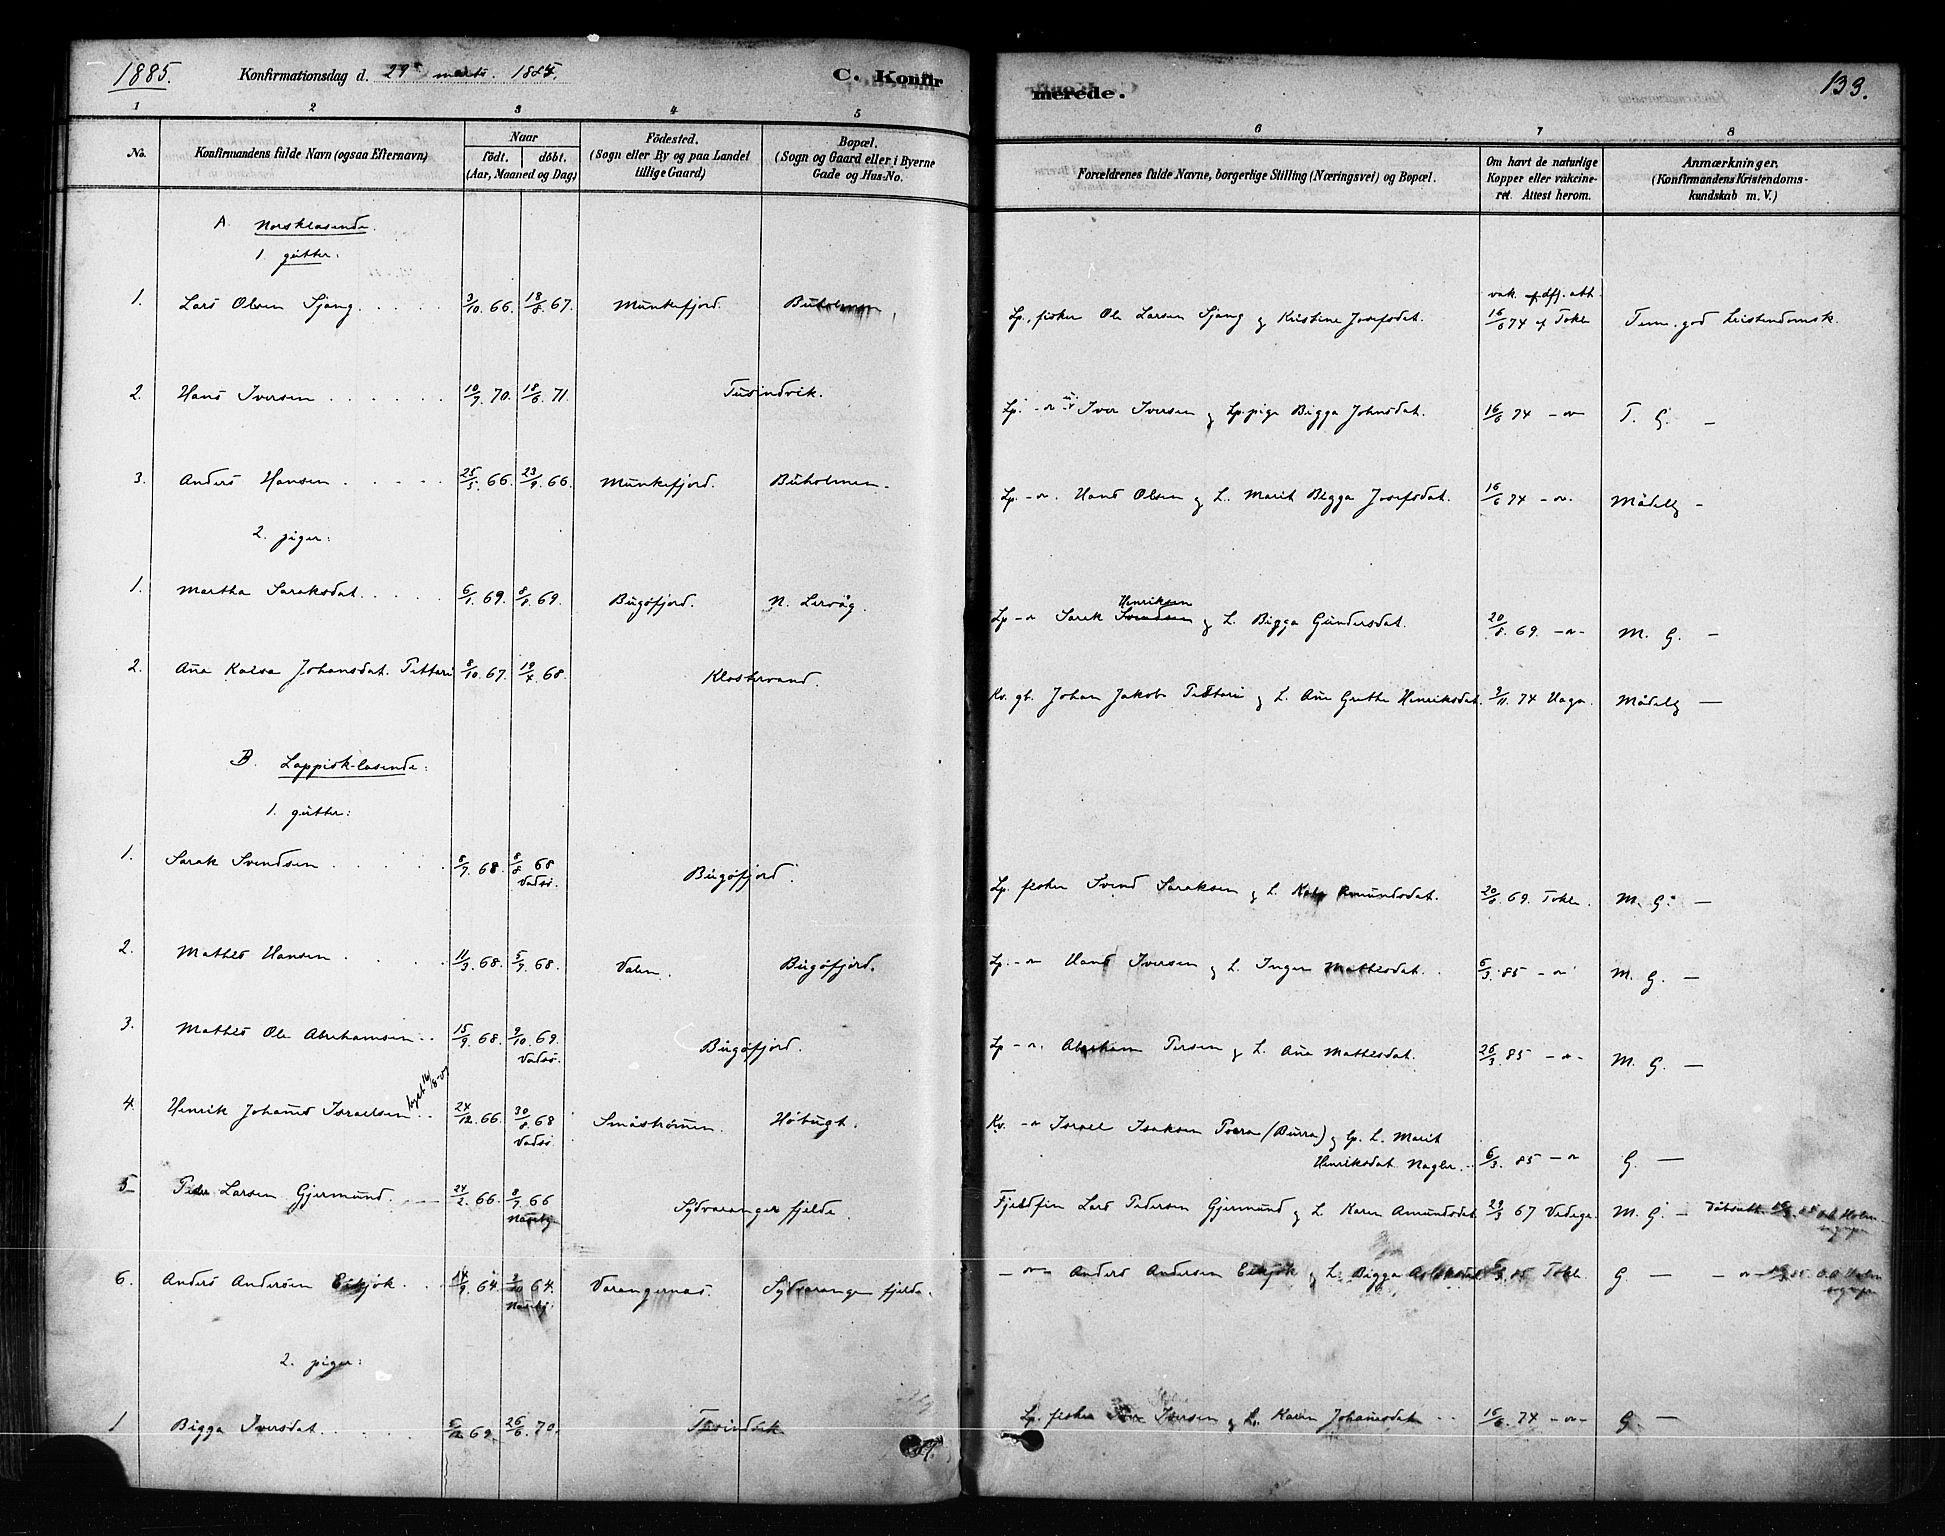 1885. Konfirmationsdag d. 29de marts. 1885. C. Konfir
merede. 133.
1 2 3 4 5 6 7 8
No. Konfirmandens fulde Navn (ogsaa Efternavn) Naar födt. döbt. (Aar, Maaned og Dag) Födested. (Sogn eller By og paa Landet tillige Gaard) Bopæl. (Sogn og Gaard eller i Byerne Gade og Hus-No. Forældrenes fulde Navne, borgerlige Stilling (Næringsvei) og Bopæl. Om havt de naturlige Kopper eller vakcineret. Attest herom. Anmærkninger. (Konfirmandens Kristendomskundskab m. V.)
A. Norsklæsende.
1. gutter:
vak. dfj. att.
1. Lars Olsen Sjang 3/10 66. 18/8 67. Munkefjord. Buholmen, Lp. fisker Ole Larsen Sjang og Kristine Josefsdat. 16/6 74 af Tokle Tem. god kristendomsk.
2. Hans Iversen 10/7 70. 18/6 71. Tusindvik. Lp. -"- Iver Iversen og Lp. pige Bigga Johnsdat. 16/6 74 -"- T. G. -
3. Anders Hansen 25/5 66. 23/9 66. Munkefjord. Buholmen. Lp. -"- Hans Olsen og L. Marit Bigga Josefsdat. 16/6 74 -"- Mådelig -
2. piger:
1. Martha Saraksdat. 6/1 69. 8/8 69. Bugöfjord. N. Lervåg. Lp -"- Sarek Svendsen Henriksen og L. Bigga Gundersdat. 20/8 69. -"- M. G. -
2. Ane Kaisa Johansdat. Pettari 8/10 67. 19/4 68. Klostervand. Kv. gb. Johan Jakob Pettari og L. Ane Grethe Henriksdat. 9/11 74 Uaga. Mådelig -
B. Lappisk-læsende:
1. gutter:
1. Sarak Svendsen 8/7 68. 8/8 68 Vadsö. Bugöfjord. Lp. fisker Svend Saraksen og L. Amundsdat. 20/8 69. Tokle. M. G. -
2. Mathis Hansen 11/3 68. 5/7 68. Valen. Bugöfjord. Lp. -"- Hans Iversen og L. Inger Mathesdat. 6/3 85 -"- M. G. -
3. Mathis Ole Abrahamsen 15/9 68. 9/10 69. Vadsö. Bugöfjord. Lp -"- Abraham Persen og L. Ane Mathesdat. 26/3 85 -"- M. G. -
4. Henrik Johannes Israelsen 24/12 66. 30/8 68 Vadsö. Småströmmen. Höbugt. Kv. -"- Israel Isaksen Poera (Burra) og Lp. L. Marit
Henriksdat. Nagler. 6/3 85 -"- G. -
5 Peder Larsen Gjermund. 24/2 66. 8/7 66 Næseby Sydvaranger fjelde. Fjeldfin Lars Pedersen Gjermund og L. Karen Amundsdat 29/3 67 Vedege. M. G. - Döbsatt. Holm
6. Anders Andersen Eikjok 14/9 64. 64. Næseby. Varangernæs. Sydvaranger fjelde. -"- Anders Andersen Eikjok og L. Bigga 85 Tokle. G. - -"- 85. Holm
2. piger:
1 Bigga Iversdat. 69. 26/6 70. Tusindvik Lp. fisker Iver Iversen og L. Karen Johannesdat 16/6 74 -"- G. -